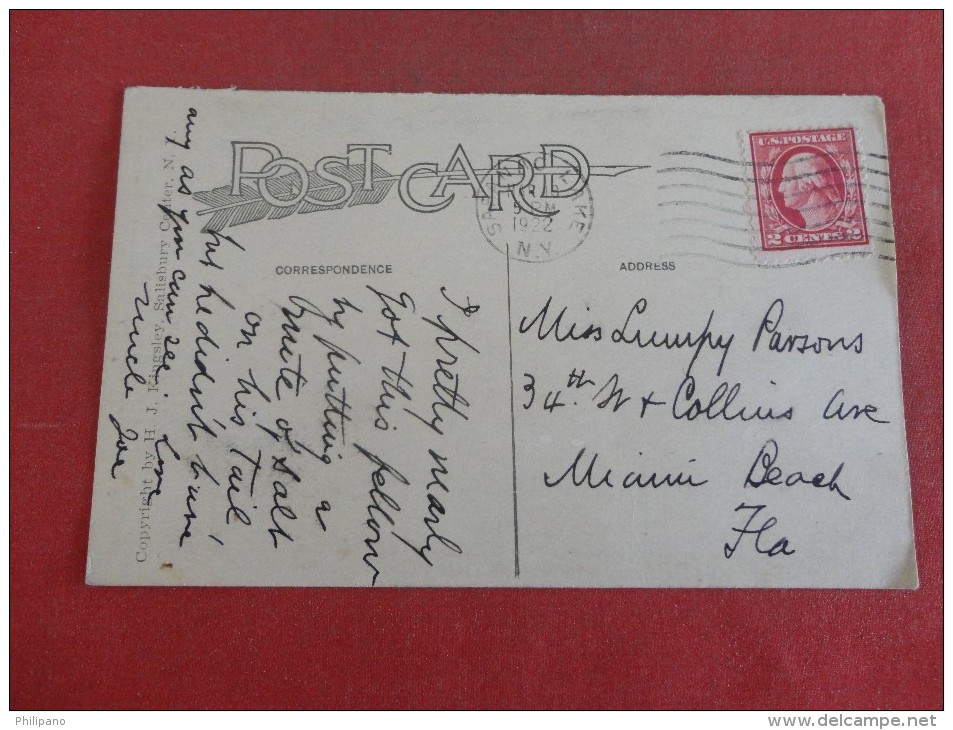 POST CARD
CORRESPONDENCE
ADDRESS
U.S. POSTAGE
2 CENTS 2
1922
N.Y.
I pretty nearly
Got this fellow
by putting a
on his Tail
but he didn't have
any as you can see
Love
Uncle Joe
Miss Lumpy Parsons
34th St & Collins Ave
Miami Beach
Fla
Copyright by H. J. Kingsley, Salisbury Center, N.Y.
Philipano
www.delcampe.net